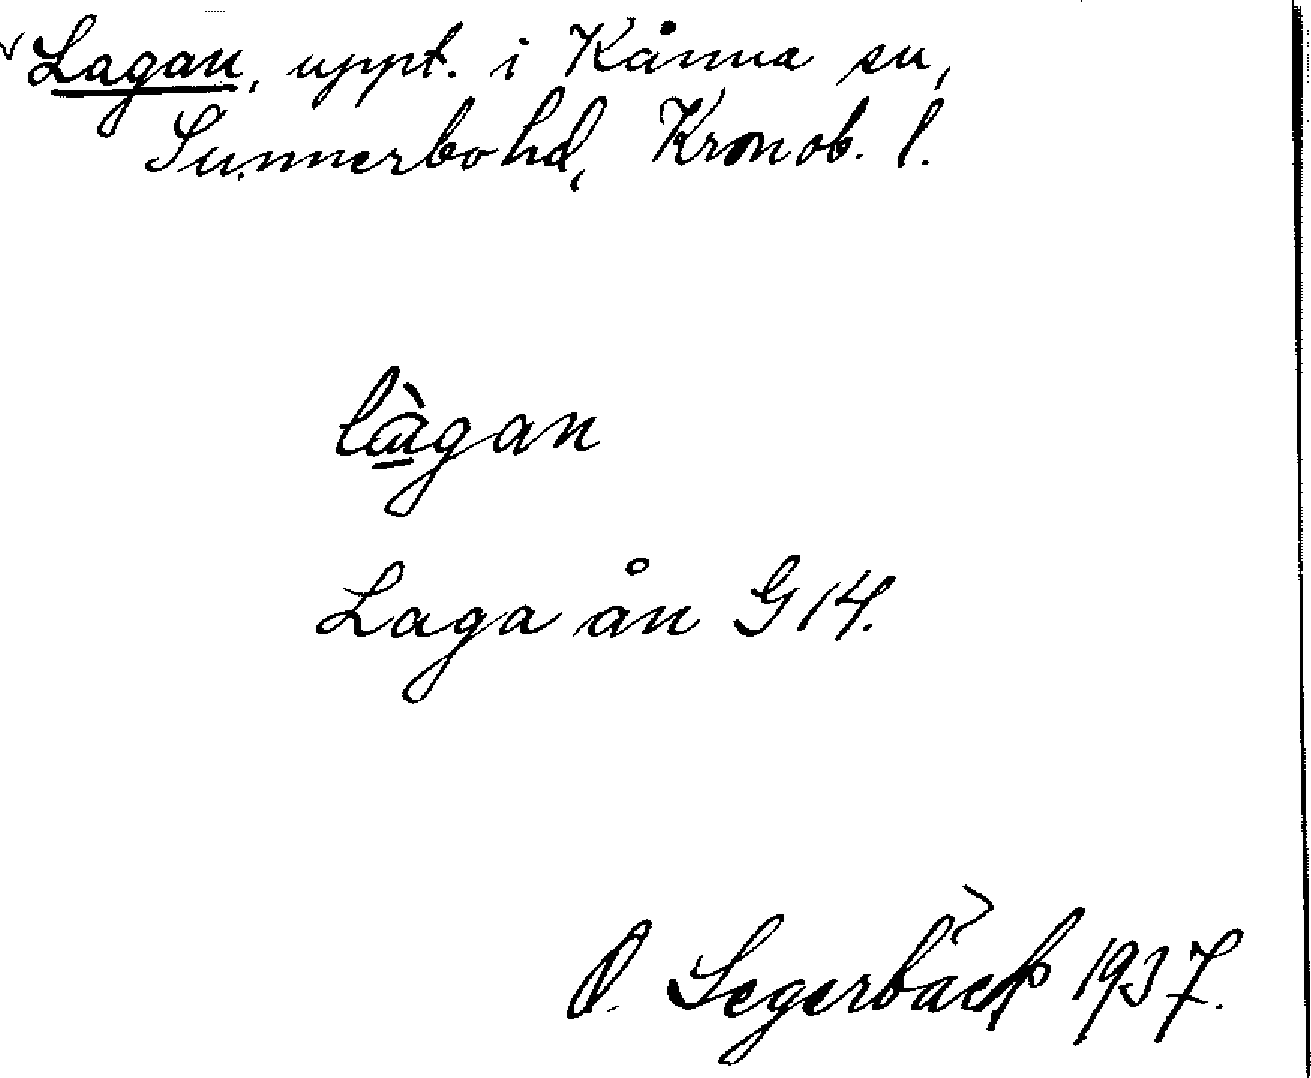 Lagan, uppt. i Kånna sn,
Sunnerbo hd, Kronob. l.
làgan
Laga ån G 14.
O. Segerbäck 1937.